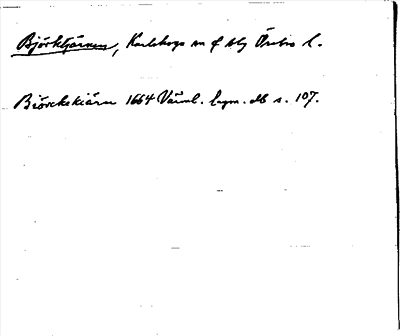 Björktjärnen, Karlskoga sn o bg Örebro l.
Biörckskiärn 1664 Värml. lagm. db s. 107.